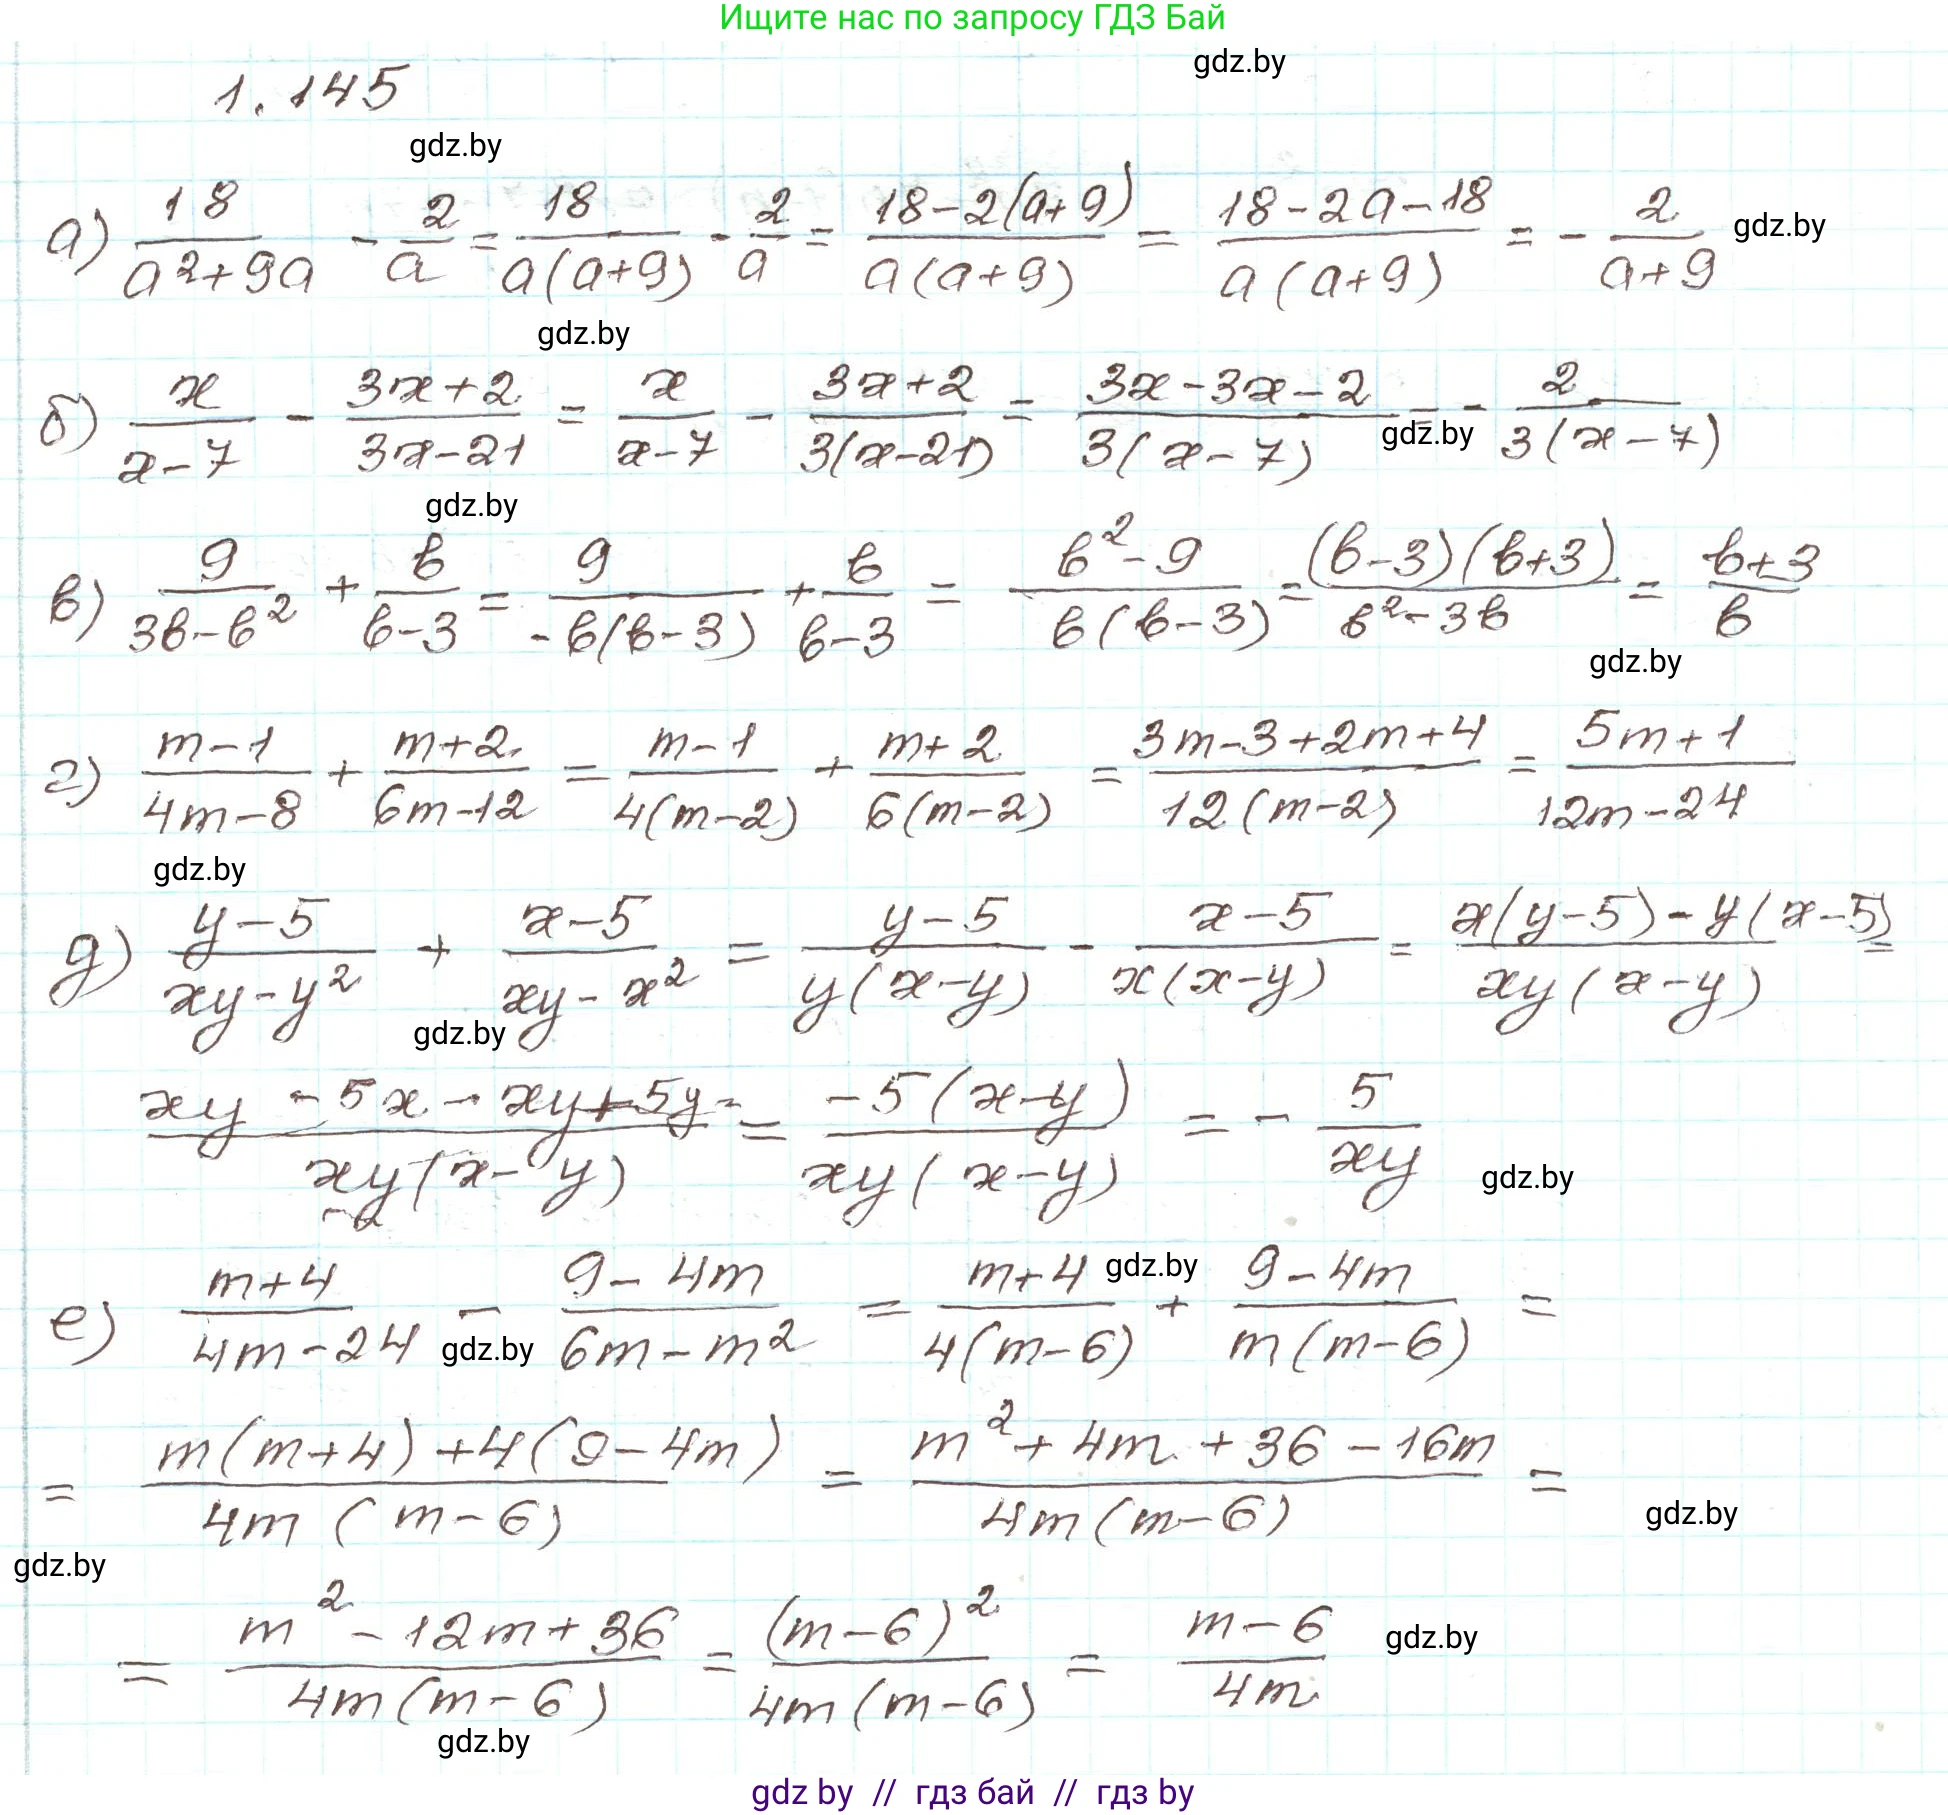 Ищите нас по запросу ГДЗ Бай
gdz.by
1.145
gdz.by
а) 18/(a²+9a) - 2/a = 18/(a(a+9)) - 2/a = (18-2(a+9))/(a(a+9)) = (18-2a-18)/(a(a+9)) = - 2/(a+9) gdz.by
gdz.by
б) x/(x-7) - (3x+2)/(3x-21) = x/(x-7) - (3x+2)/(3(x-21)) = (3x-3x-2)/(3(x-7)) = - 2/(3(x-7))
gdz.by
gdz.by
в) 9/(3b-b²) + b/(b-3) = 9/(-b(b-3)) + b/(b-3) = (b²-9)/(b(b-3)) = ((b-3)(b+3))/(b²-3b) = (b+3)/b
gdz.by
г) (m-1)/(4m-8) + (m+2)/(6m-12) = (m-1)/(4(m-2)) + (m+2)/(6(m-2)) = (3m-3+2m+4)/(12(m-2)) = (5m+1)/(12m-24)
gdz.by
д) (y-5)/(xy-y²) + (x-5)/(xy-x²) = (y-5)/(y(x-y)) - (x-5)/(x(x-y)) = (x(y-5)-y(x-5))/(xy(x-y)) =
gdz.by
(xy-5x-xy+5y)/(xy(x-y)) = (-5(x-y))/(xy(x-y)) = - 5/(xy)
gdz.by
е) (m+4)/(4m-24) - (9-4m)/(6m-m²) = (m+4)/(4(m-6)) + (9-4m)/(m(m-6)) =
gdz.by
gdz.by
= (m(m+4)+4(9-4m))/(4m(m-6)) = (m²+4m+36-16m)/(4m(m-6)) =
gdz.by
gdz.by
= (m²-12m+36)/(4m(m-6)) = (m-6)²/(4m(m-6)) = (m-6)/(4m) gdz.by
gdz.by
gdz by // гдз бай // гдз by